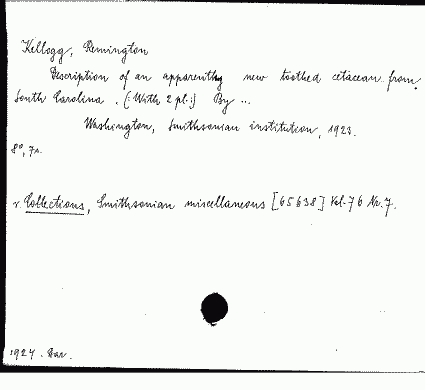 Kellogg, Remington
Description of an apparently new toothed cetacean from
South Carolina. (: With 2 pl. :) By ...
Washington, Smithsonian institution, 1923.
8°, 7 s.
v. Collections, Smithsonian miscellaneous [65638] Vol. 76 Nr. 7.
1924.